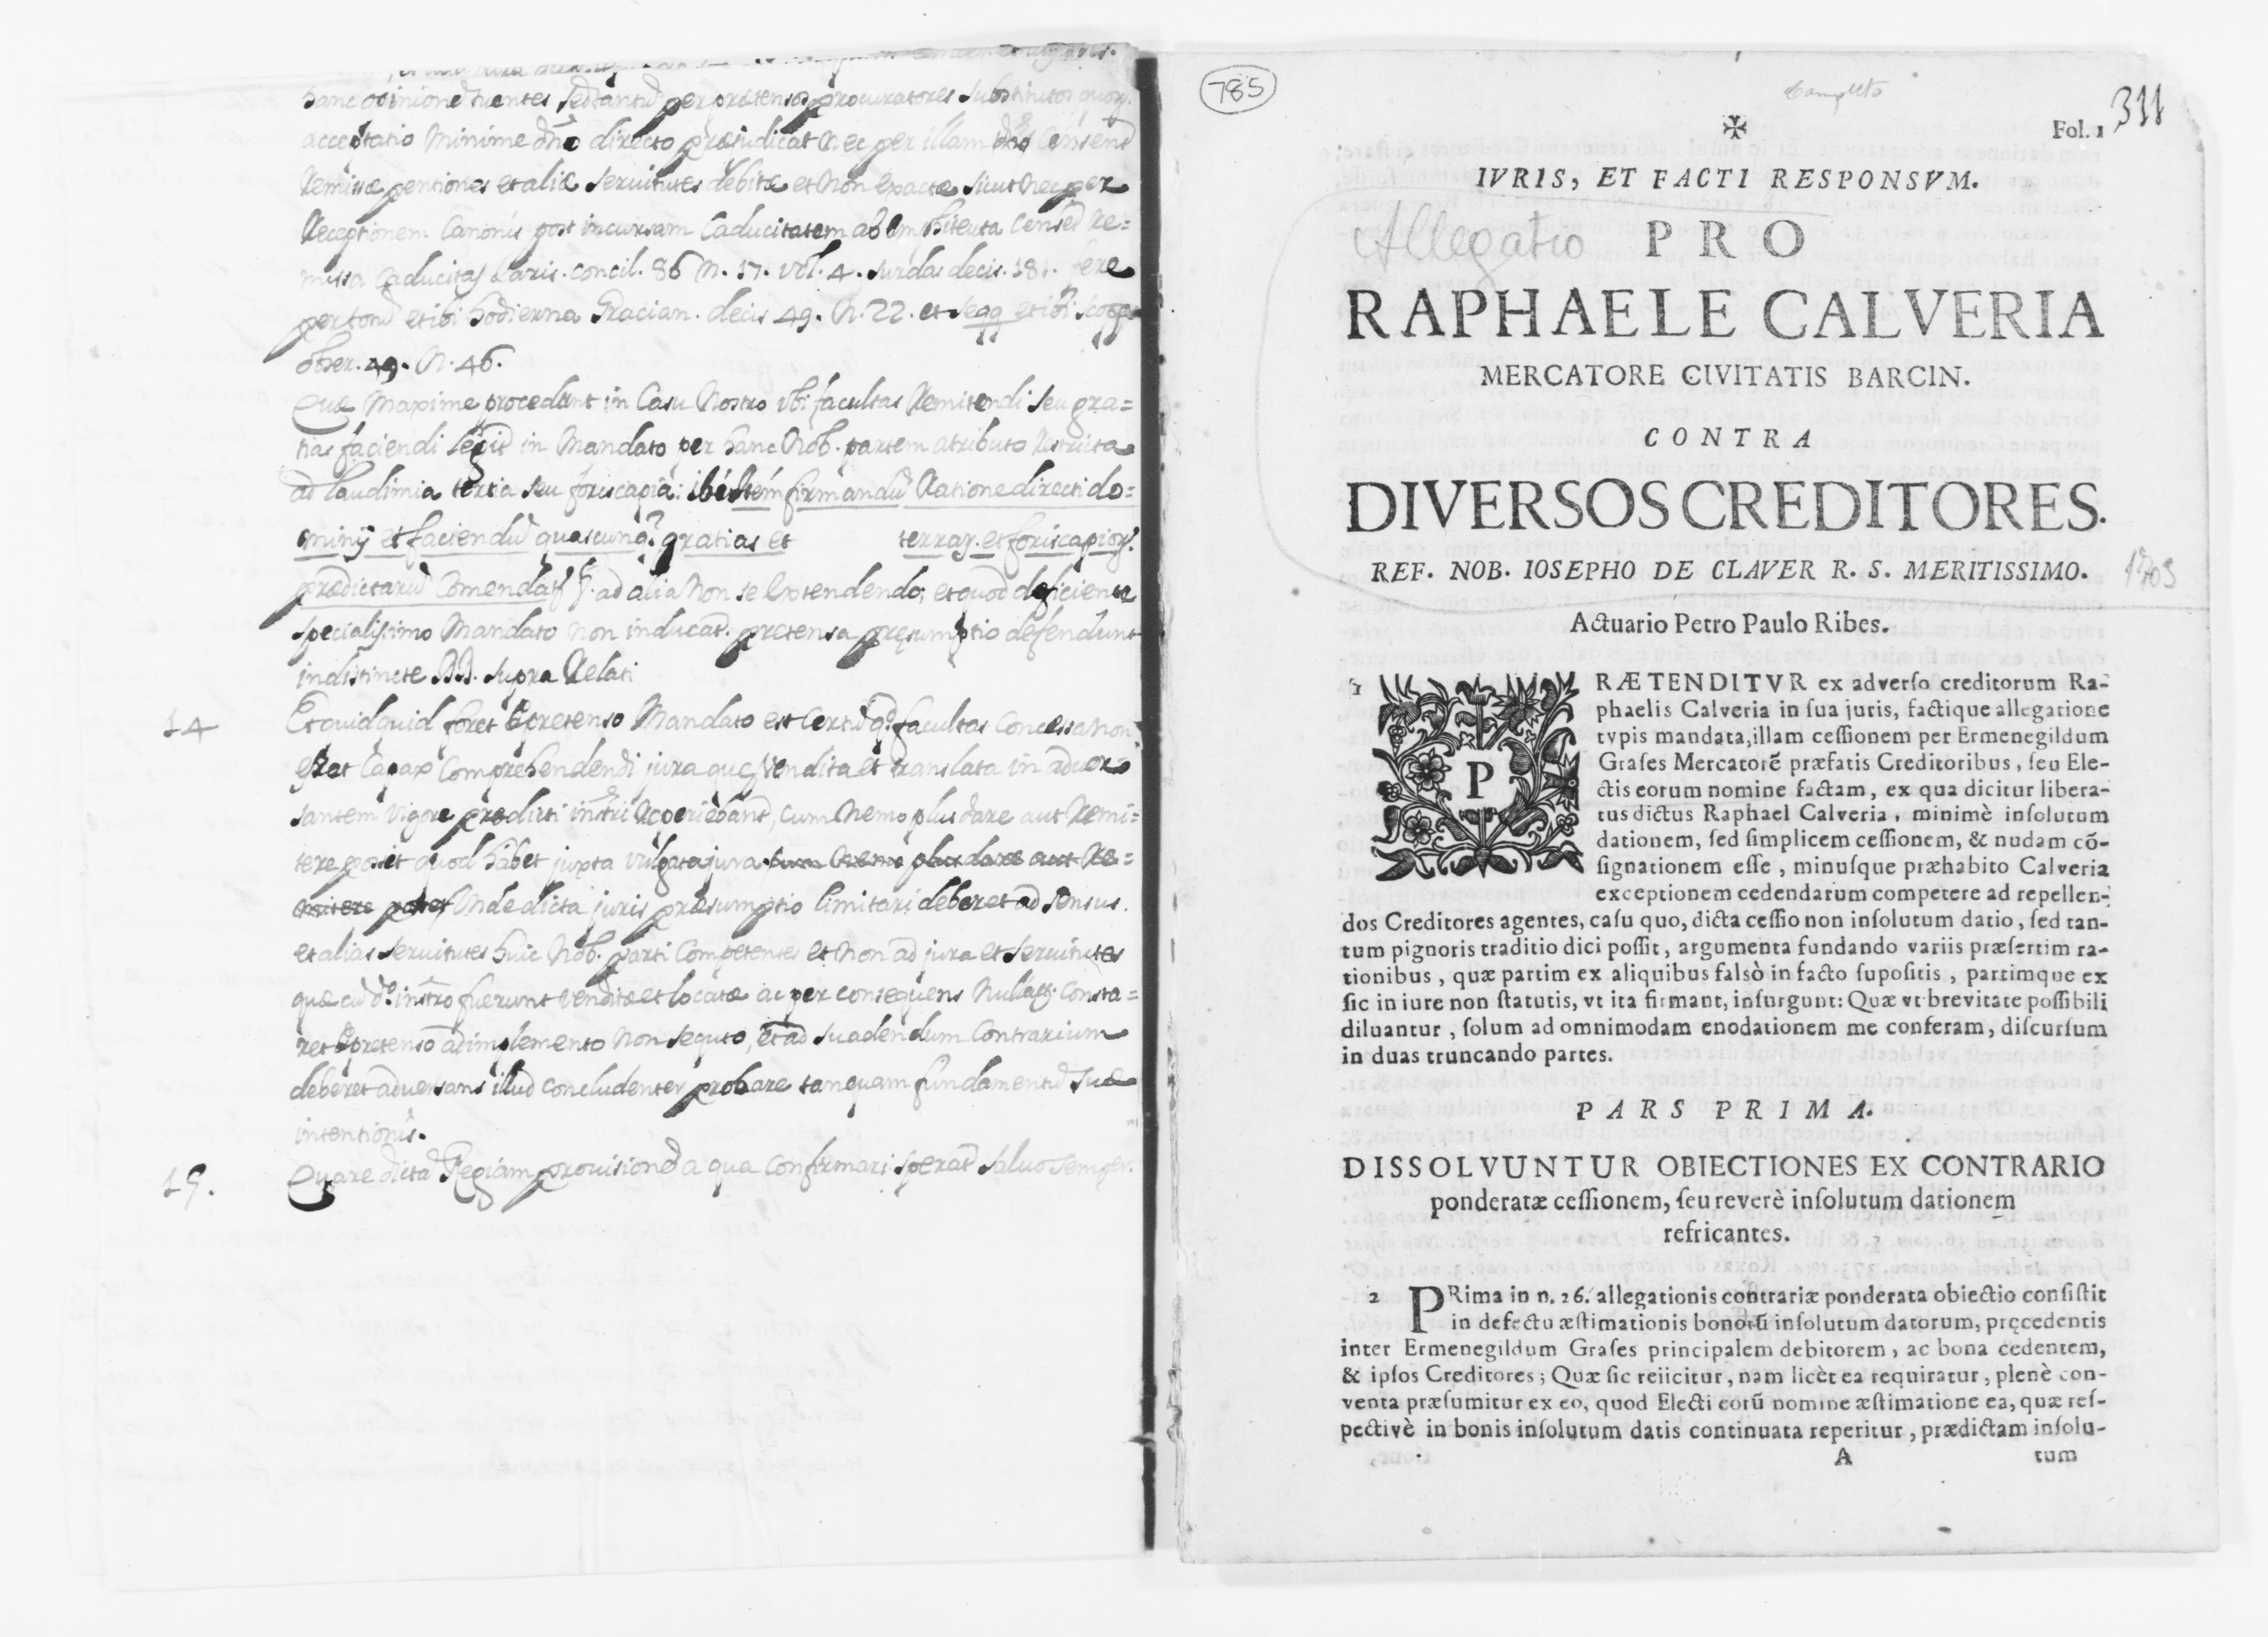 hanc opinionē tuentes sed tantū per prætensos procuratores substitutos quorꝫ
acceptatio minime dn̄o directo præiudicat nec per illam censent̄
remissæ pentiones et aliæ seruitutes debitæ et non exactæ sicut nec per
receptionem Canonis post incursam Caducitatem ab emphiteuta censet̄ re=
missa Caducitas Paris. concil. 86 n. 17. vol. 4. Surdas decis. 181. fere
per totū et ibi hodierna Gracian. decis 49. n. 22. et seqq et ibi
obser. 49. n. 46.
Quæ maxime procedunt in Casu nostro vbi facultas remitendi seu gra=
tias faciendi legit̄ in mandato per hanc Nob. partem atributo restricta
ad laudimia tertia seu foriscapia: ibi firmandū ratione directi do=
minij et faciendū quascunq̃ gratias et terrarꝫ. et foriscapiorꝫ.
prædictarū Comendarꝫ ad alia non se extendendo; et quod deficiente
specialissimo Mandato non inducat̄. pretensa præsumptio defendunt
indistincte DD. supra relati
14 Et quidquid foret pretenso Mandato est certū qd̄ facultas concessa non
erat Capax Comprehendendi jura quę vendita et translata in aduer
santem vigore prædicti inst̄ri reperiebant̄, cum nemo plus dare aut remi=
tere posset quod habet juxta vulgata jura cum nemo plus dare aut re=
mitere potest Unde dicta juris præsumptio limitari deberet ad sensus.
et alias seruitutes huic Nob. parti Competentes et non ad jura et seruitutes
quæ cū do. inst̄ro fuerunt venditæ et locatæ ac per consequens consta=
ret pretenso adimplemento non sequto, et ad suadendum Contrarium
deberet aduersans illud concludenter probare tanquam fundamentū suæ
intentionis.
15. Quare dictā Regiam prouisionē a qua confirmari sperat̄ saluo semper.
785
Completo
311
✠
Fol. 1
IVRIS, ET FACTI RESPONSVM.
Allegatio PRO
RAPHAELE CALVERIA
MERCATORE CIVITATIS BARCIN.
CONTRA
DIVERSOS CREDITORES.
REF. NOB. IOSEPHO DE CLAVER R. S. MERITISSIMO.
1703
Actuario Petro Paulo Ribes.
1 PRÆTENDITVR ex adverſo creditorum Ra-
phaelis Calveria in ſua juris, factique allegatione
typis mandata, illam ceſſionem per Ermenegildum
Graſes Mercatorẽ præfatis Creditoribus, ſeu Ele-
ctis eorum nomine factam, ex qua dicitur libera-
tus dictus Raphael Calveria, minimè inſolutum
dationem, ſed ſimplicem ceſſionem, & nudam cõ-
ſignationem eſſe, minuſque præhabito Calveria
exceptionem cedendarum competere ad repellen-
dos Creditores agentes, caſu quo, dicta ceſſio non inſolutum datio, ſed tan-
tum pignoris traditio dici poſſit, argumenta fundando variis præſertim ra-
tionibus, quæ partim ex aliquibus falsò in facto ſupoſitis, partimque ex
ſic in iure non ſtatutis, vt ita firmant, inſurgunt: Quæ vt brevitate poſſibili
diluantur, ſolum ad omnimodam enodationem me conferam, diſcurſum
in duas truncando partes.
PARS PRIMA.
DISSOLVUNTUR OBIECTIONES EX CONTRARIO
ponderatæ ceſſionem, ſeu reverè inſolutum dationem
refricantes.
2 PRima in n. 26. allegationis contrariæ ponderata obiectio conſiſtit
in defectu æſtimationis bonorũ inſolutum datorum, pręcedentis
inter Ermenegildum Graſes principalem debitorem, ac bona cedentem,
& ipſos Creditores; Quæ ſic reiicitur, nam licèt ea requiratur, plenè con-
venta præſumitur ex eo, quod Electi eorũ nomine æſtimatione ea, quæ reſ-
pectivè in bonis inſolutum datis continuata reperitur, prædictam inſolu-
A tum